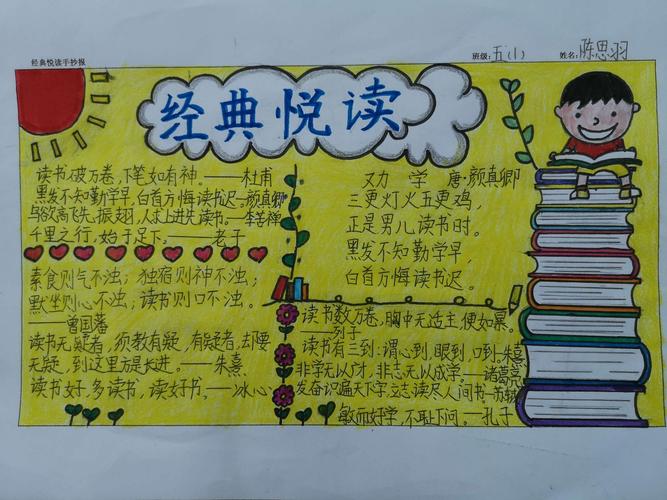 经典悦读手抄报
班级:五(1) 姓名:陈思羽
经典悦读
读书破万卷,下笔如有神。——杜甫
黑发不知勤学早,白首方悔读书迟。——颜真卿
鸟欲高飞先振翅,人求上进先读书。——李苦禅
千里之行,始于足下。——老子
素食则气不浊;独宿则神不浊;
默坐则心不浊;读书则口不浊。
——曾国藩
读书无疑者,须教有疑,有疑者,却要
无疑,到这里方是长进。——朱熹
读书好,多读书,读好书。——冰心
劝学 唐·颜真卿
三更灯火五更鸡,
正是男儿读书时。
黑发不知勤学早,
白首方悔读书迟。
读书数万卷,胸中无适主,便如暴。
——列子
读书有三到:谓心到,眼到,口到—朱熹
非学无以广才,非志无以成学。—诸葛亮
发奋识遍天下字,立志读尽人间书—苏轼
敏而好学,不耻下问。—孔子